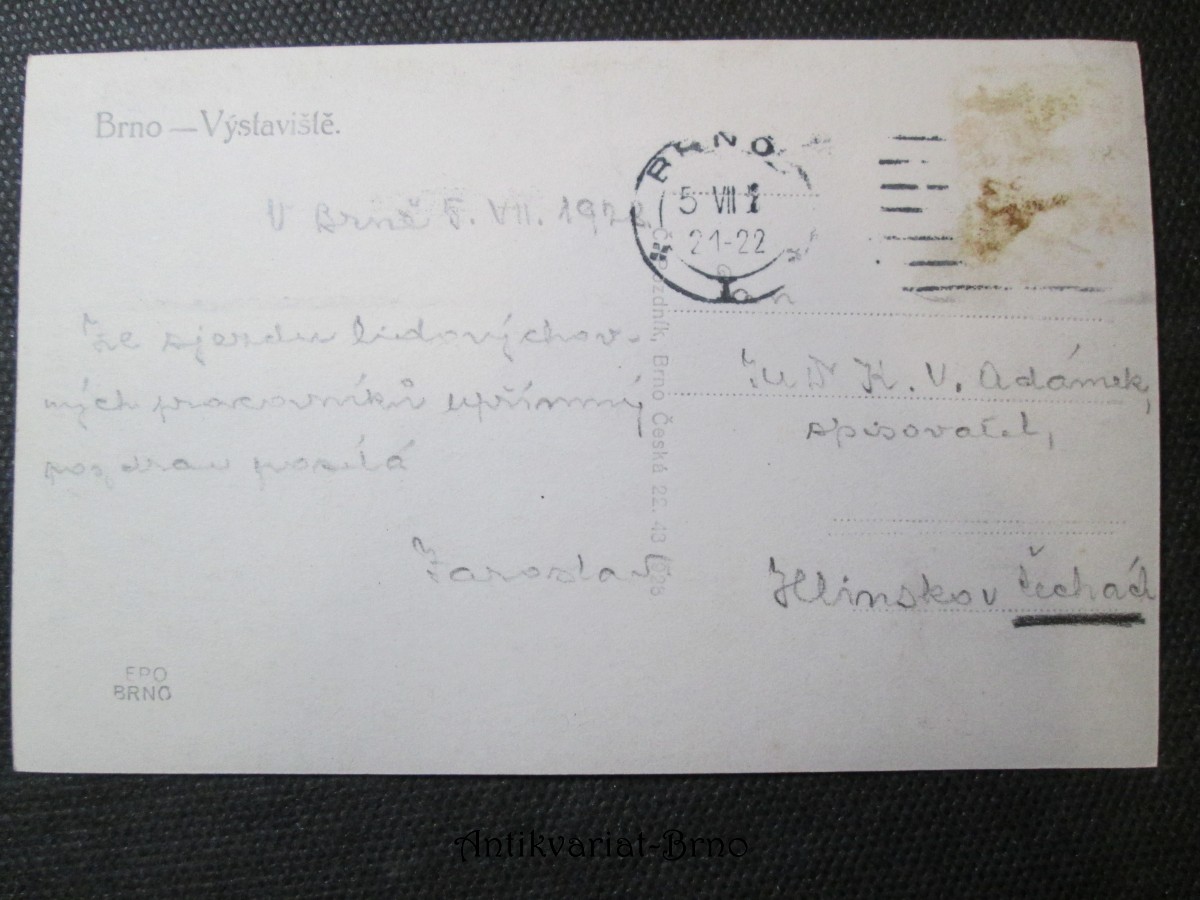 Brno — Výstaviště.
BRNO
5 VII
21-22
1
V Brně 5. VII. 1928
Ze sjezdu lidovýchov-
ných pracovníků upřímný
pozdrav posílá
Jaroslav
Pan
JUDr K. V. Adámek,
spisovatel,
Hlinsko v Čechách
Brno Česká 22. 43
EPO
BRNO
Antikvariat-Brno